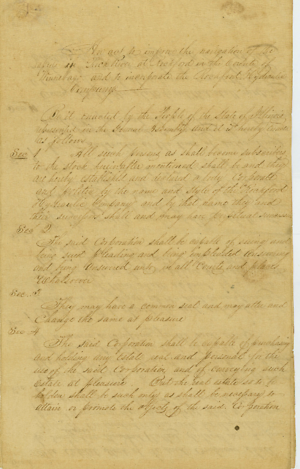 An act to improve the navigation of
in the County of
Winnebago and to incorporate the Rockford Hydraulic
Company
Be it enacted by the People of the State of Illinois,
represented in the General Assembly that
as follows
Sec 1 All such persons as shall become subscribers
to the Stock hereinafter mentioned shall be and they
are hereby constituted and declared a body Corporate
and Politic by the name and Style of the Rockford
Hydraulic Company and by that name they and
their successors shall and may have perpetual succession
Sec 2
The said Corporation shall be capable of suing and
being sued pleading and being impleaded answering
and being answered unto, in all Courts and places
Whatsoever
Sec 3
They may have a common seal and may alter and
Change the same at pleasure
Sec 4
The said Corporation shall be capable of purchasing
and holding any Estate real and personal for the
use of the said Corporation and of conveying such
Estate at pleasure But the real estate so to be
holden shall be such only as shall be necessary to
attain or promote the objects of the said Corporation